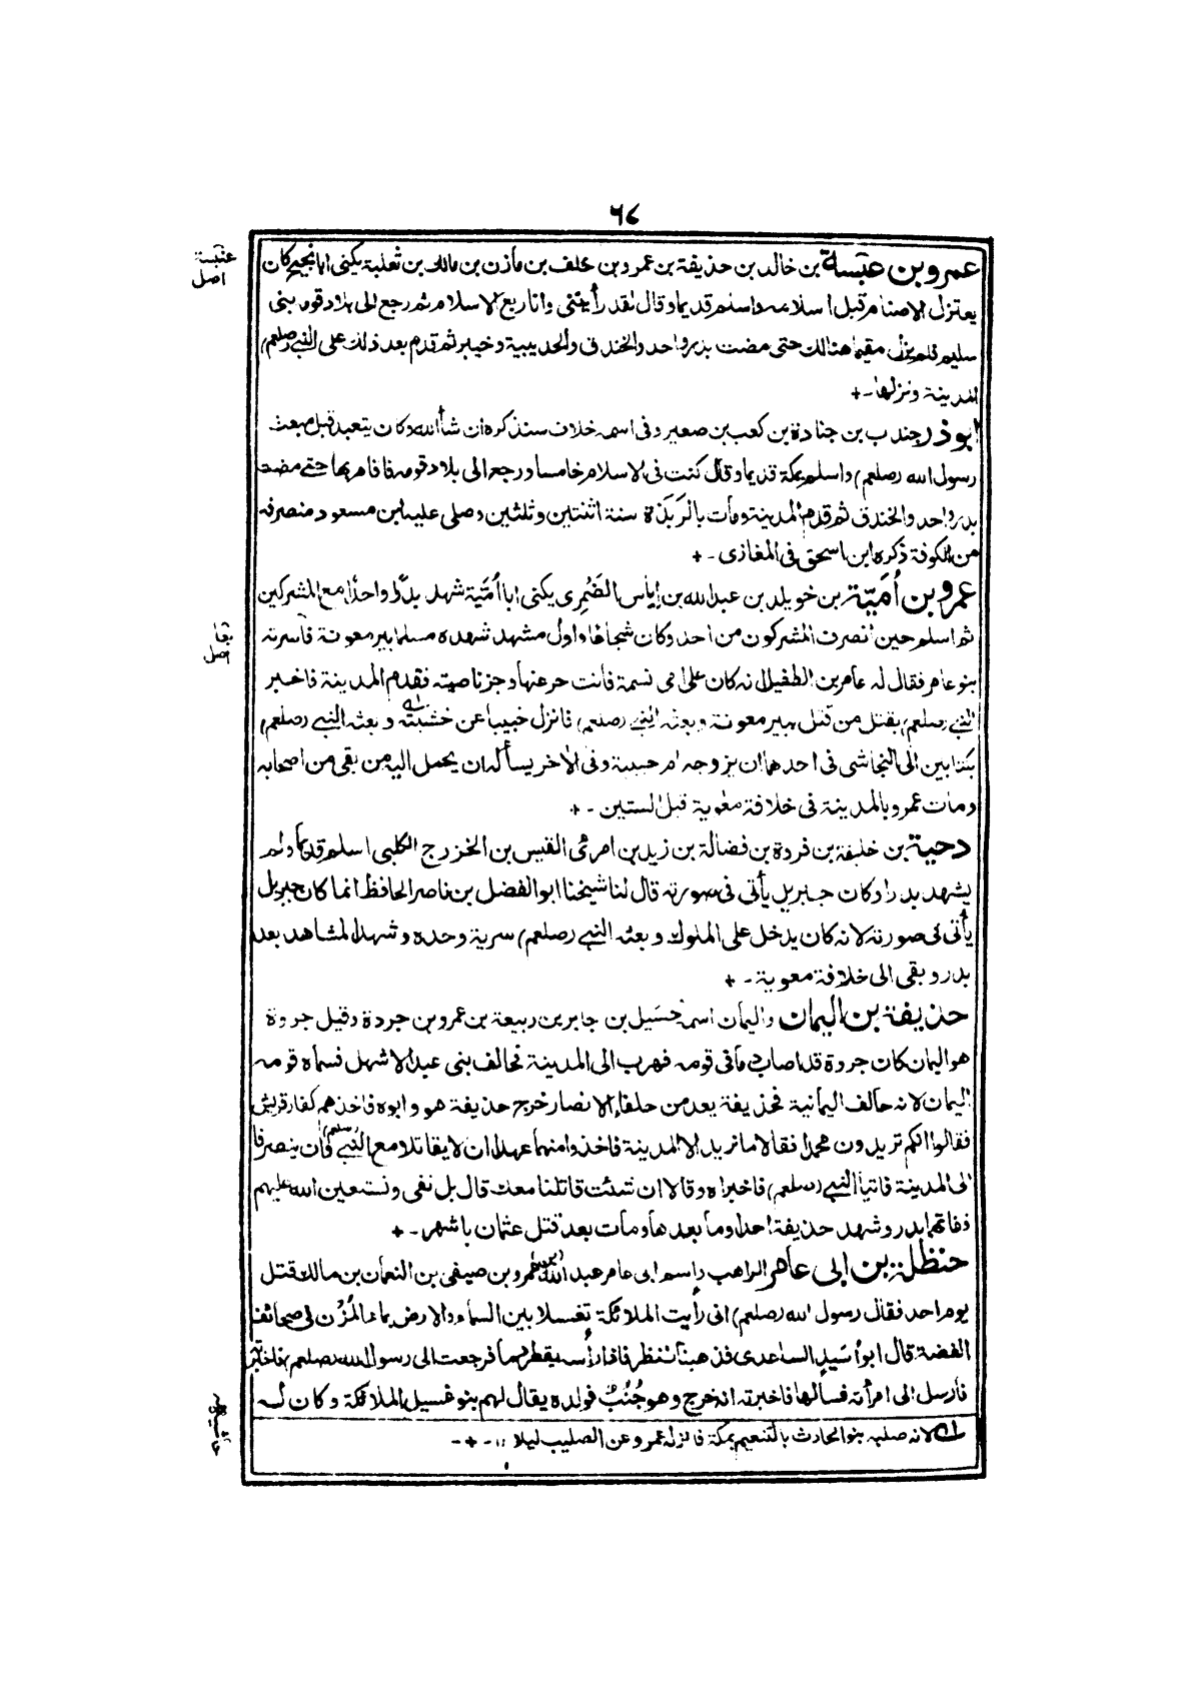 ٦٨
عمرو بن عبسة بن خالد بن حذيفة بن عمرو بن خلف بن مازن بن مالك بن ثعلبة يكنى ابا نجيح كان
عنبسة
اصل
يعتزل الاصنام قبل اسلامه واسلم قديما وقال لقد رأيتني وانا ربع الاسلام ثم رجع الى بلاد قومه بنى
سليم فلم يزل مقيما هنالك حتى مضت بدر واحد والخندق والحديبية وخيبر ثم قدم بعد ذلك على النبي (صلعم)
المدينة ونزلها -+
ابوذر جندب بن جنادة بن كعب بن صعير وفى اسمه خلاف سنذكره ان شأالله وكان يتعبد قبل مبعث
رسول الله (صلعم) واسلم بمكة قديما وقال كنت فى الاسلام خامسا ورجع الى بلاد قومه فاقام بها حتى مضت
بدر واحد والخندق ثم قدم المدينة ومات بالرَبَذة سنة اثنتين وثلثين وصلى عليه ابن مسعود منصرفه
من الكوفة ذكره ابن اسحق فى المغازى -+
عمرو بن اُمَيّة بن خويلد بن عبدالله بن اياس الضَمُرِى يكنى ابا اُمَيّة شهد بدًرا واحدًا مع المشركين
ثم اسلم حين انصرف المشركون من احد وكان شجاعا واول مشهد شهده مسلما بير معونة فأسرته
اصل
بنو عامر فقال له عامر بن الطفيل انه كان على امى نسمة فانت حر عنها وجز ناصيته فقدم المدينة فاخبر
النبي (صلعم) بقتل من قتل ببير معونة وبعثه النبي (صلعم) فانزل خبيبا عن خشبته ؎١ وبعثه النبي (صلعم)
بكتابين الى النجاشى فى احدهما ان يزوجه ام حبيبة وفى الاخر يسأله ان يحمل اليه من بقى من اصحابه
ومات عمرو بالمدينة فى خلافة معوية قبل الستين -+
دحية بن خليفة بن فردة بن فضالة بن زيد بن امرئى القيس بن الخزرج الكلبى اسلم قديما ولم
يشهد بدرا وكان جبريل يأتى فى صورته قال لنا شيخنا ابو الفضل بن ناصر الحافظ انما كان جبريل
يأتى فى صورته لانه كان يدخل على الملوك وبعثه النبي (صلعم) سرية وحده وشهد المشاهد بعد
بدر وبقى الى خلافة معوية -+
حذيفة بن اليمان واليمان اسمه حُسَيل بن جابر بن ربيعة بن عمرو بن جردة وقيل جروة
هو اليمان كان جروة قد اصاب دمأ فى قومه فهرب الى المدينة فحالف بنى عبد الاشهل فسماه قومه
اليمان لانه حالف اليمانية فحذيفة يعد من حلفاء الانصار خرج حذيفة هو وابوه فاخذهم كفار قريش
فقالوا انكم تريدون محمدا فقالا ما نريد الا المدينة فاخذوا منهما عهدا ان لا يقاتلا مع النبي (صلعم) وان ينصرفا
الى المدينة فاتيا النبي (صلعم) فاخبراه وقالا ان شئت قاتلنا معك قال بل نفى ونستعين الله عليهم
ففاتهما بدر وشهد حذيفة احدا وما بعدها ومات بعد قتل عثمان باشهر -+
حنظلة بن ابى عامر الراهب واسم ابى عامر عبد الله بن عمرو بن صيفى بن النعمان بن مالك قتل
يوم احد فقال رسول الله (صلعم) انى رأيت الملائكة تغسله بين السماء والارض بماء المُزْن فى صحائف
الفضة قال ابو اُسَيدٍ الساعدى فذهبنا ننظر فاذا رأسه يقطر مأ فرجعت الى رسول الله (صلعم) فاخبرته
فأرسل الى امرأته فسألها فاخبرته انه خرج وهو جُنُبٌ فولده يقال لهم بنو غسيل الملائكة وكان له
؎١ لانه صلبه بنو الحادث بالتنعيم بمكة فانزله عمرو عن الصليب ليلا -+-
حاشية